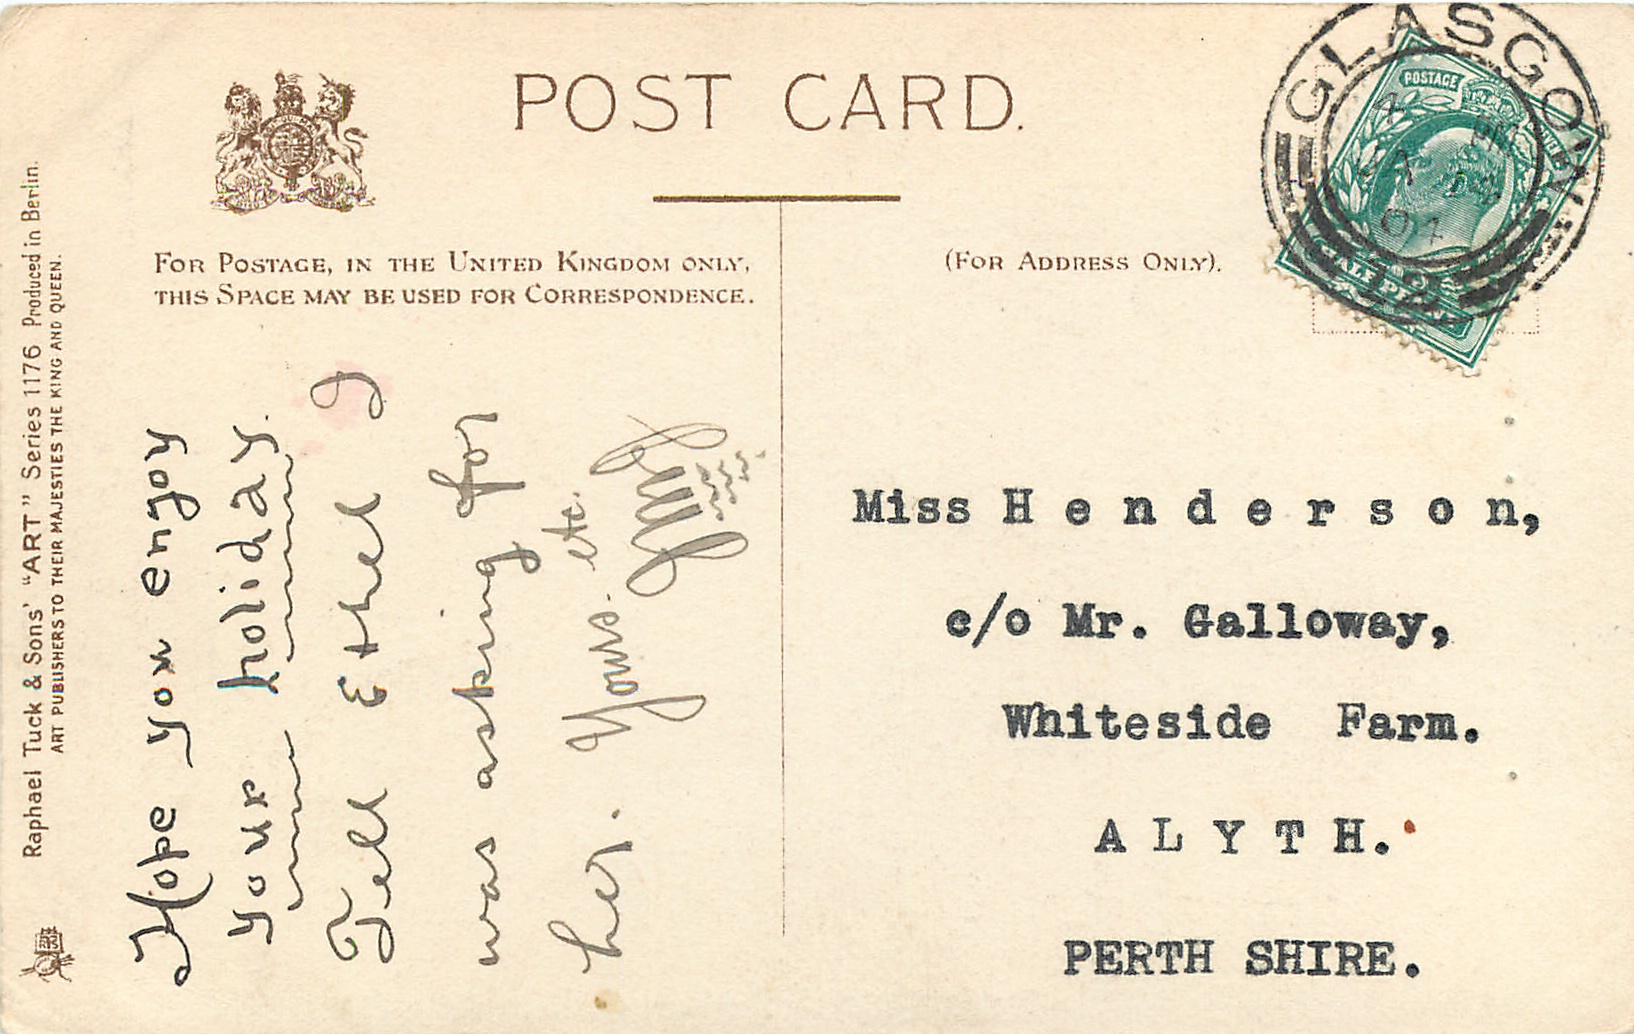 POST CARD.
FOR POSTAGE, IN THE UNITED KINGDOM ONLY,
THIS SPACE MAY BE USED FOR CORRESPONDENCE.
(FOR ADDRESS ONLY).
Raphael Tuck & Sons' "ART" Series 1176 Produced in Berlin.
ART PUBLISHERS TO THEIR MAJESTIES THE KING AND QUEEN.
Hope you enjoy
your holiday.
Tell Ethel I
was asking for
her. Yours. etc.
Miss Henderson,
c/o Mr. Galloway,
Whiteside Farm.
ALYTH.
PERTH SHIRE.
GLASGOW
4 PM
JA
04
POSTAGE
HALFPENNY